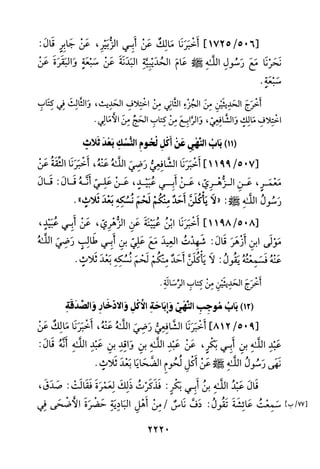 [١٧٢٥/٥٠٦] أَخْبَرَنَا مَالِكٌ عَنْ أَبِي الزُّبَيْرِ، عَنْ جَابِرٍ قَالَ:
نَحَرْنَا مَعَ رَسُولِ اللَّهِ ﷺ عَامَ الحُدَيْبِيَّةِ البَدَنَةَ عَنْ سَبْعَةٍ، وَالبَقَرَةَ عَنْ
سَبْعَةٍ.
أَخْرَجَ الحَدِيثَيْنِ مِنَ الجُزْءِ الثَّانِي مِنِ اخْتِلَافِ الحَدِيثِ، وَالثَّالِثَ فِي كِتَابِ
اخْتِلَافِ مَالِكٍ وَالشَّافِعِيِّ، وَالرَّابِعَ مِنْ كِتَابِ الحَجِّ مِنَ الأَمَالِي.
(١١) بَابُ النَّهْيِ عَنْ أَكْلِ لُحُومِ النُّسُكِ بَعْدَ ثَلَاثٍ
[١١٩٩/٥٠٧] أَخْبَرَنَا الشَّافِعِيُّ رَضِيَ اللَّهُ عَنْهُ، أَخْبَرَنَا الثِّقَةُ عَنْ
مَعْمَرٍ، عَنِ الزُّهْرِيِّ، عَنْ أَبِي عُبَيْدٍ، عَنْ عَلِيٍّ أَنَّهُ قَالَ: قَالَ
رَسُولُ اللَّهِ ﷺ: «لَا يَأْكُلَنَّ أَحَدٌ مِنْكُمْ لَحْمَ نُسُكِهِ بَعْدَ ثَلَاثٍ».
[١١٩٨/٥٠٨] أَخْبَرَنَا ابْنُ عُيَيْنَةَ عَنِ الزُّهْرِيِّ، عَنْ أَبِي عُبَيْدٍ،
مَوْلَى ابنِ أَزْهَرَ قَالَ: شَهِدْتُ العِيدَ مَعَ عَلِيِّ بنِ أَبِي طَالِبٍ رَضِيَ اللَّهُ
عَنْهُ فَسَمِعْتُهُ يَقُولُ: لَا يَأْكُلَنَّ أَحَدٌ مِنْكُمْ لَحْمَ نُسُكِهِ بَعْدَ ثَلَاثٍ.
أَخْرَجَ الحَدِيثَيْنِ مِنْ كِتَابِ الرِّسَالَةِ.
(١٢) بَابُ مُوجِبِ النَّهْيِ وَإِبَاحَةِ الأَكْلِ وَالادِّخَارِ وَالصَّدَقَةِ
[٨١٢/٥٠٩] أَخْبَرَنَا الشَّافِعِيُّ رَضِيَ اللَّهُ عَنْهُ، أَخْبَرَنَا مَالِكٌ عَنْ
عَبْدِ اللَّهِ بنِ أَبِي بَكْرٍ، عَنْ عَبْدِ اللَّهِ بنِ وَاقِدِ بنِ عَبْدِ اللَّهِ أَنَّهُ قَالَ:
نَهَى رَسُولُ اللَّهِ ﷺ عَنْ أَكْلِ لُحُومِ الضَّحَايَا بَعْدَ ثَلَاثٍ.
قَالَ عَبْدُ اللَّهِ بنُ أَبِي بَكْرٍ: فَذَكَرْتُ ذَلِكَ لِعَمْرَةَ فَقَالَتْ: صَدَقَ،
سَمِعْتُ عَائِشَةَ تَقُولُ: دَفَّ نَاسٌ /مِنْ أَهْلِ البَادِيَةِ حَضْرَةَ الأَضْحَى فِي [٧٧/ب]
٢٢٢٠